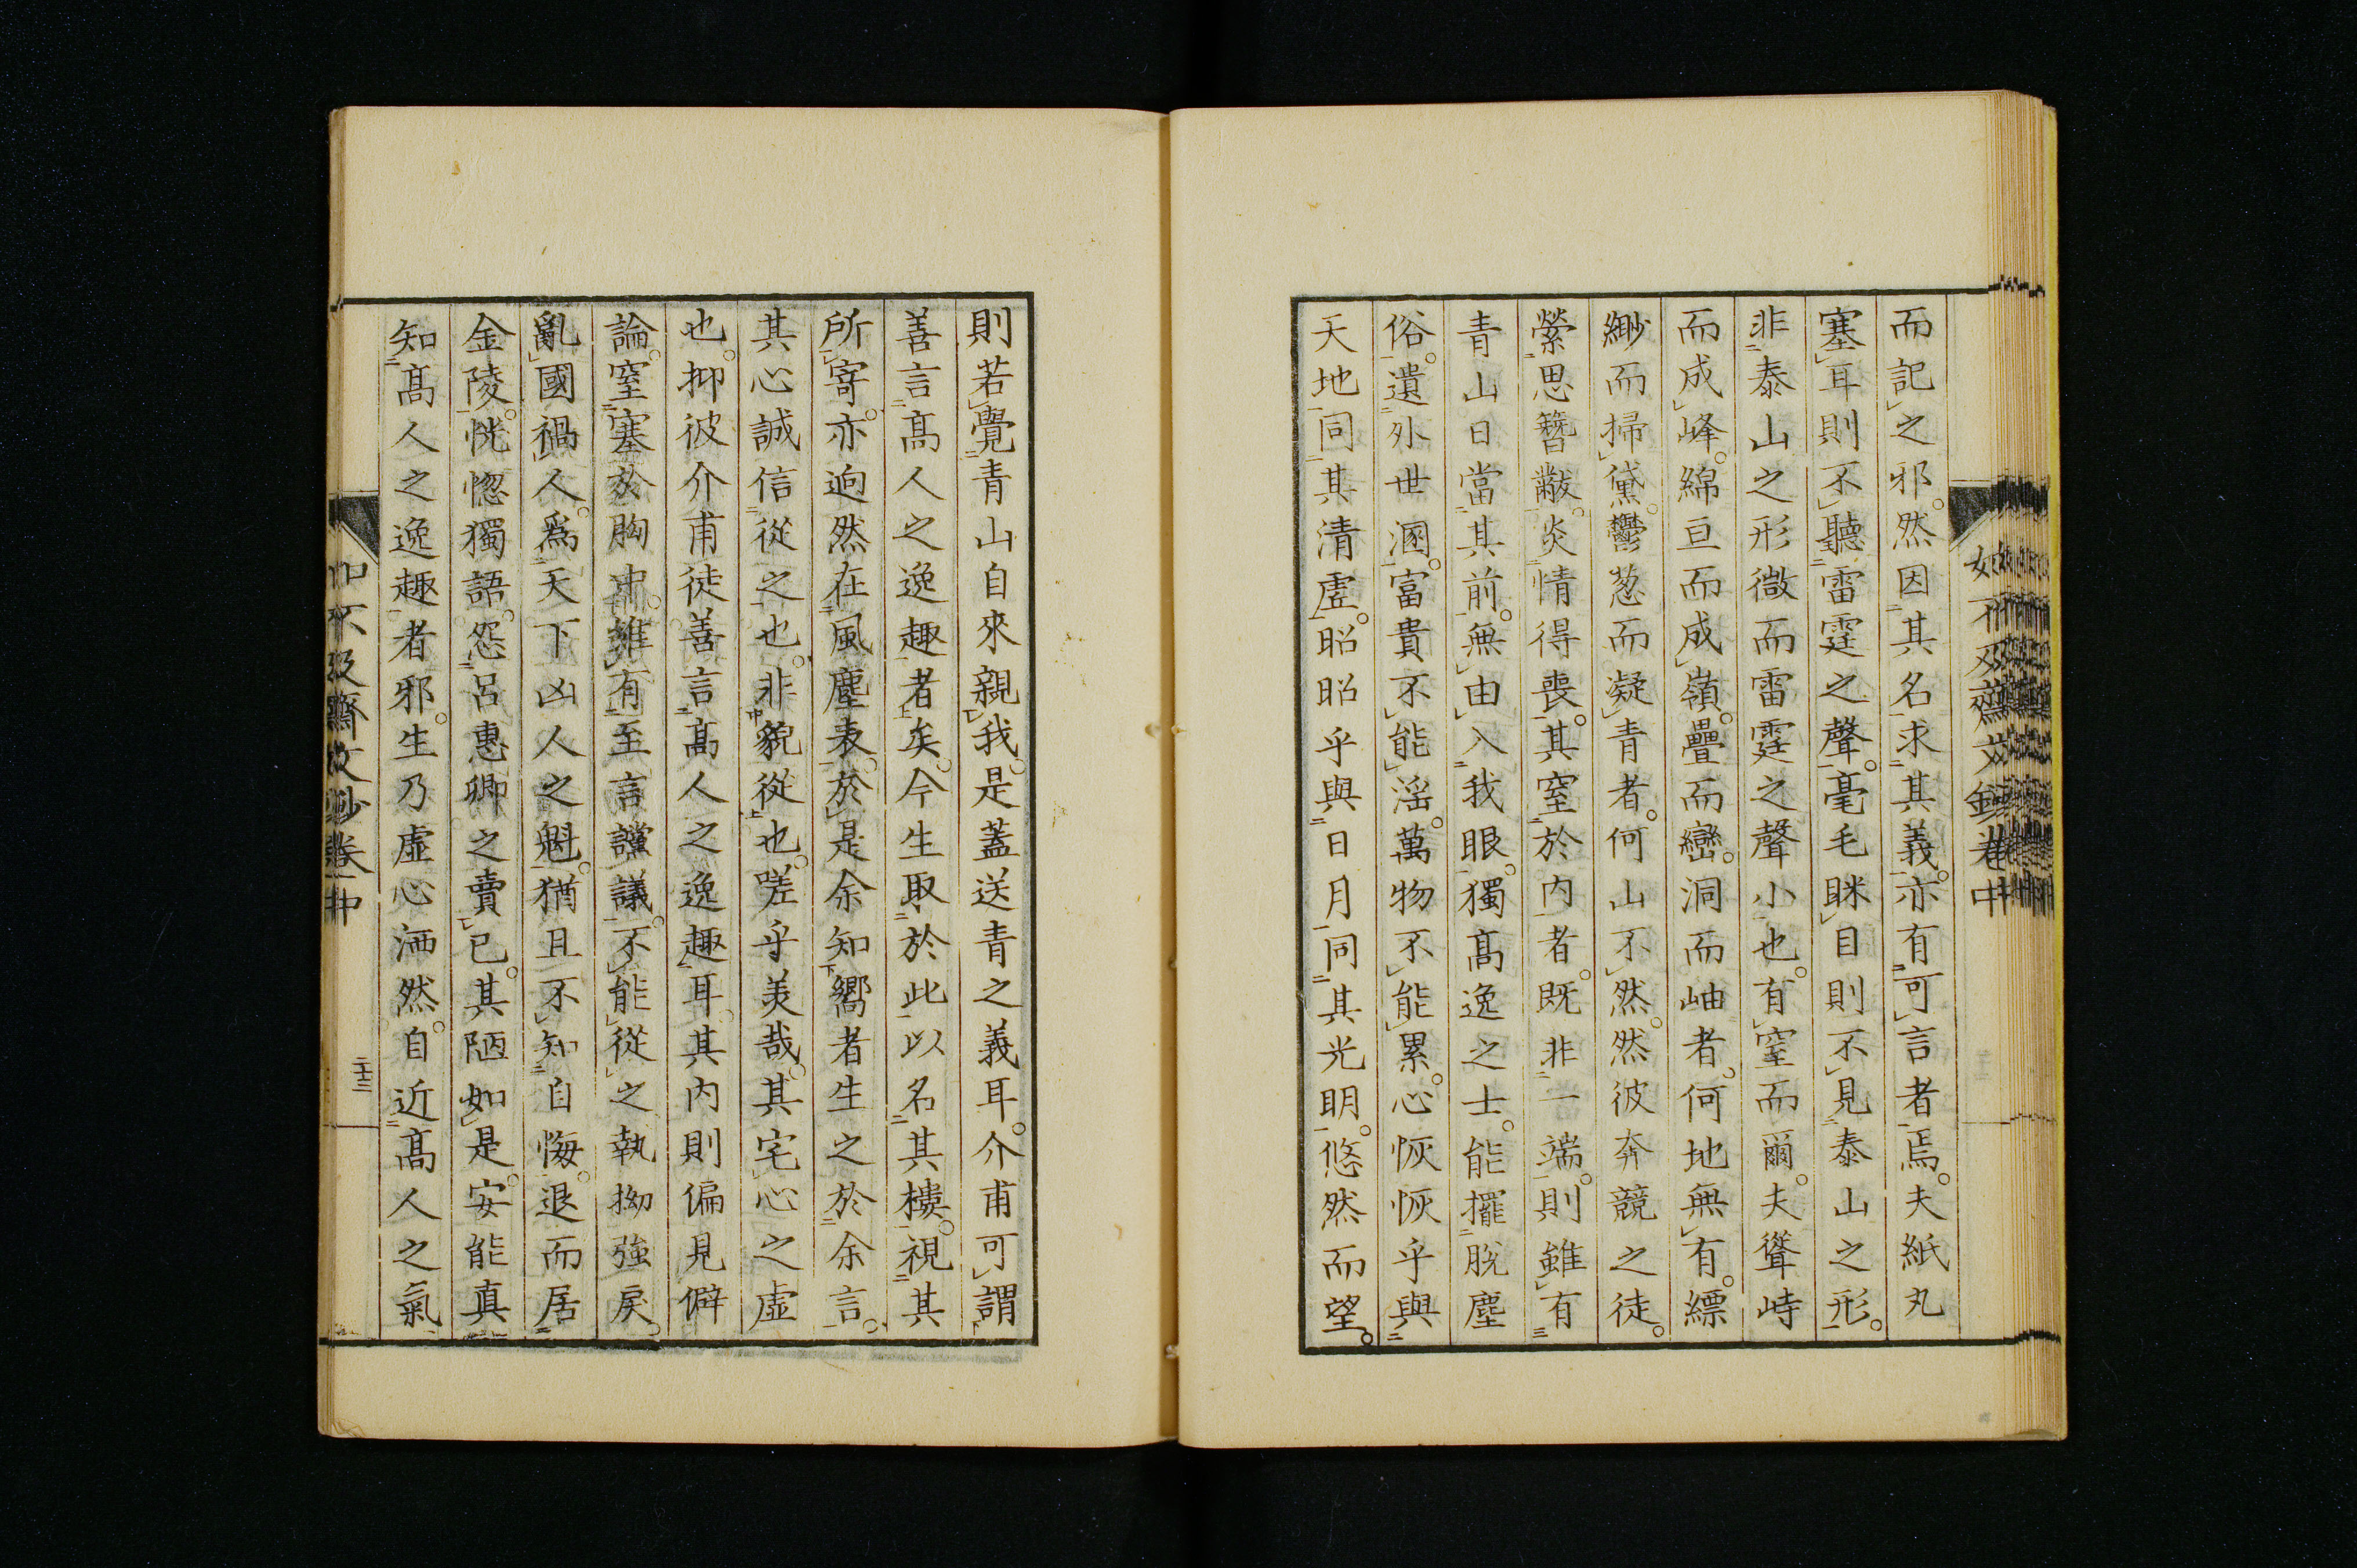 而記之邪。然因其名求其義。亦有可言者焉。夫紙丸
塞耳則不聽雷霆之聲。毫毛眯目則不見泰山之形。
非泰山之形微而雷霆之聲小也。有窒而爾。夫聳峙
而成峰。綿亘而成嶺。疊而巒。洞而岫者。何地無有。縹
緲而掃黛。鬱葱而凝青者。何山不然。然彼奔競之徒。
縈思簪黻。炎情得喪。其窒於内者。既非一端。則雖有
青山日當其前。無由入我眼。獨髙逸之士。能擺脫塵
俗。遺外世溷。富貴不能淫。萬物不能累。心恢恢乎與
天地同其清虛。昭昭乎與日月同其光明。悠然而望。
則若覺青山自來親我。是蓋送青之義耳。介甫可謂
善言髙人之逸趣者矣。今生取於此以名其樓。視其
所寄。亦逈然在風塵表。於是余知嚮者生之於余言。
其心誠信從之也。非貌從也。嗟乎美哉。其宅心之虛
也。抑彼介甫徒善言髙人之逸趣耳。其内則偏見僻
論。窒塞於胸中。雖有至言讜議。不能從之執拗強戾。
亂國禍人。爲天下凶人之魁。猶且不知自悔。退而居
金陵。恍惚獨語。怨呂惠卿之賣已。其陋如是。安能真
知髙人之逸趣者邪。生乃虛心洒然。自近髙人之氣
如不及齋文鈔卷中
二十三
如不及齋文鈔卷中